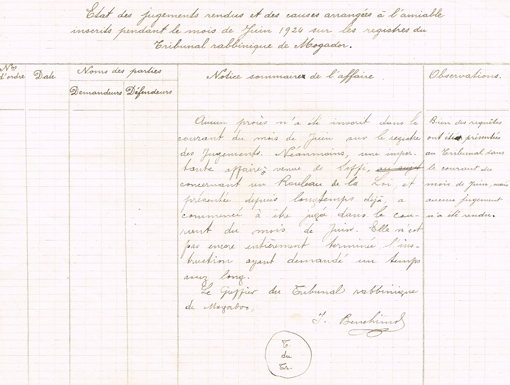 Etat des jugements rendues et des causes arrangés à l'amiable
inscrits pendant le mois de Juin 1924 sur les registres du
Tribunal rabbinique de Mogador.
Nos d'ordre
Date
Noms des parties
Demandeurs
Défendeurs
Notice sommaire de l'affaire.
Observations.
Aucun procès n'a été inscrit dans le
courant du mois de Juin sur le registre
des Jugements. Néanmoins, une impor-
tante affaire, venue de Saffi,
concernant un Rouleau de la Loi, et
présentée depuis longtemps déjà, a
commencé à être jugée dans le cou-
rant du mois de Juin. Elle n'est
pas encore entièrement terminée l'ins-
truction ayant demandé un temps
assez long.
Le Greffier du Tribunal rabbinique
de Mogador.
Bien des requêtes
ont été présentées
au Tribunal dans
le courant du
mois de Juin, mais
aucun jugement
n'a été rendu.
J. Benchimol
T.
du
Tr.